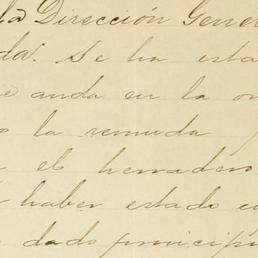 la Dirección Gener
da. Se ha esta
e anda en la o
o la remuda
el herradero
haber estado e
dado principi